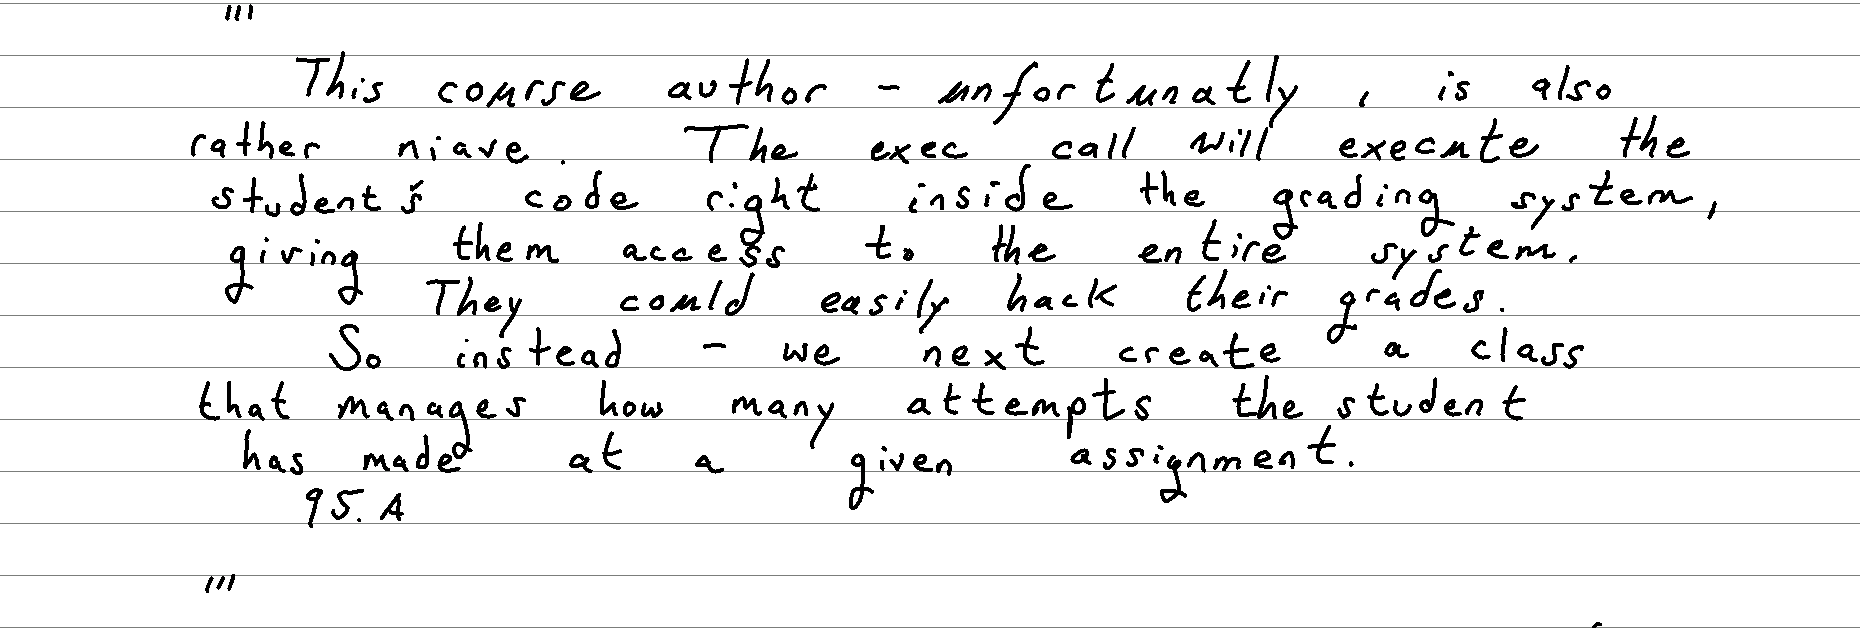 '''
This course author - unfortunatly, is also
rather niave. The exec call will execute the
student's code right inside the grading system,
giving them access to the entire system.
They could easily hack their grades.
So instead - we next create a class
that manages how many attempts the student
has made at a given assignment.
95. A
'''